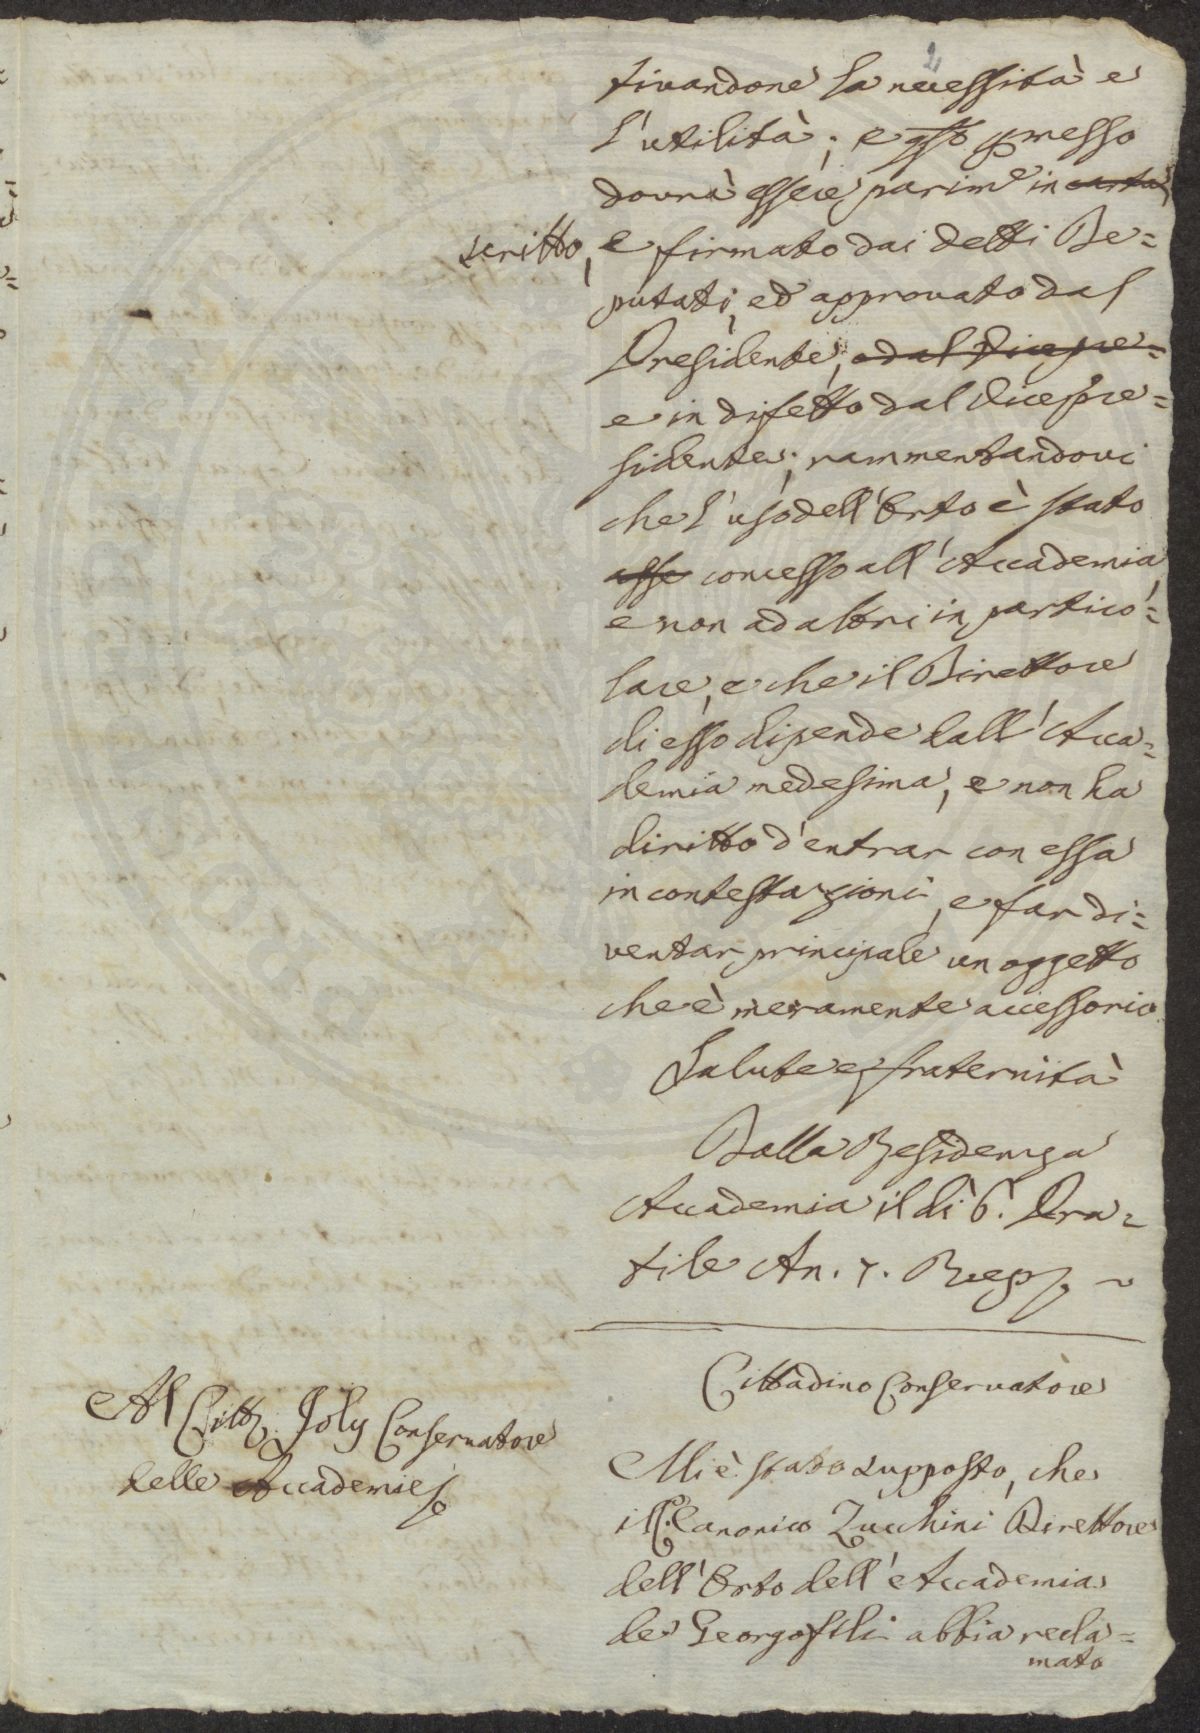 2
tivandone la necessità e
l'utilità; e qsto pmesso
dovrà essere parimᵉ in carta
scritto, e firmato dai detti De=
putati, ed approvato dal
Presidente, o dal Vicepre=
e in difetto dal Vicepre=
sidente; rammentandovi
che l'uso dell'Orto è stato
asse concesso all'Accademia,
e non ad altri in partico=
lare, e che il Direttore
di esso dipende dall'Acca=
demia medesima, e non ha
diritto d'entrar con essa
in contestazioni, e far di=
ventar principale un oggetto
che è meramente accessorio.
Salute e fraternità
Dalla Residenza
Accademia il dì 6. Pra=
tile An. 7. Rep.
Cittadino Conservatore
Al Citt. Joly Conservatore
delle Accademie
Mi è stato supposto, che
il Canonico Zucchini Direttore
dell'Orto dell'Accademia
de' Georgofili abbia recla=
mato